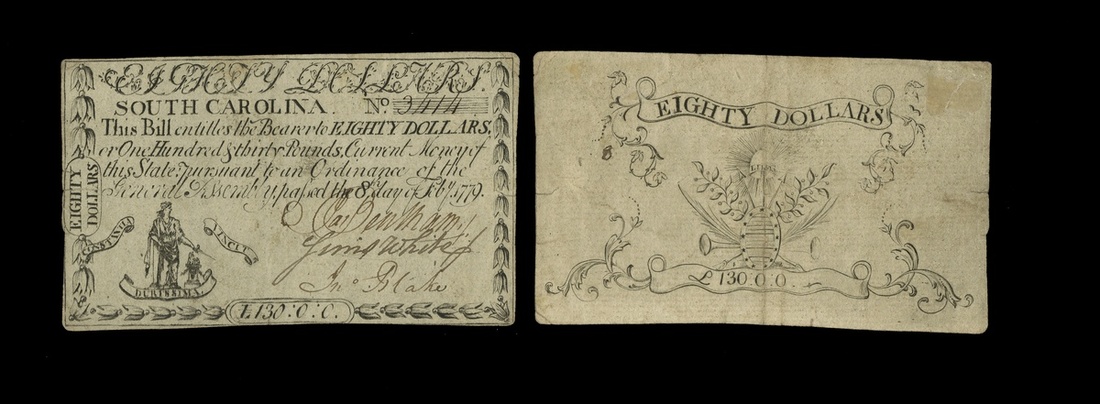 EIGHTY DOLLARS.
SOUTH CAROLINA. No. 3414
This Bill entitles the Bearer to EIGHTY DOLLARS,
or One Hundred & thirty Pounds, Current Money of
this State, pursuant to an Ordinance of the
General Assembly, passed the 8th day of Feby. 1779.
EIGHTY
DOLLARS
VINCIT
DURISSIMA
£130:0:0.
White
Jno Blake
EIGHTY DOLLARS
£130:0:0.